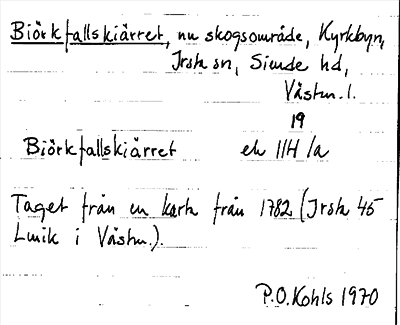 Biörkfallskiärret, nu skogsområde, Kyrkbyn,
Irsta sn, Siende hd,
Västm. l.
19
Biörkfallskiärret ek 11H/a
Taget från en karta från 1782 (Irsta 45
Lmik i Västm.).
P.O. Kohls 1970